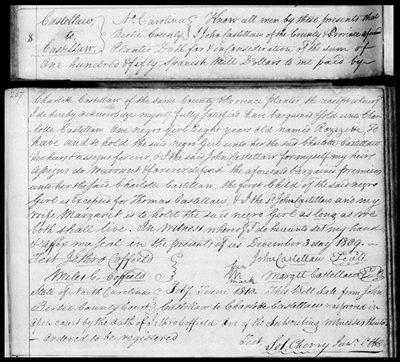 Castellaw, No Carolina Know all men by these presents that
8 to Bertie County I John Castellaw of the County & Province aforesaid
Castellaw. Planter Doth for & in Consideration of the sum of
One hundred & fifty Spanish Mill Dollars to me paid by
Charlotte Castellaw of the same County & Province planter the receipt whereof
I do hereby acknowledge myself fully satisfied have bargained & sold unto Char
lotte Castellaw One negro Girl Eight years old named To
have and to hold the said negro Girl unto her the said Charlotte Castellaw
her heirs & assigns forever, & I the said John Castellaw for myself my heirs
assigns do Warrant & forever defend the aforesaid bargained premises
unto her the said Charlotte Castellaw the first Child of the said negro
Girl is excepted for Thomas Castellaw, & I the sd John Castellaw and my
wife Margaret is to hold the said negro Girl as long as we
both shall live. In Witness whereof I do hereunto set my hand
& affix my seal in the presents of us December 3 day 1809.
Test Jethro Coffield John Castellaw Seal
Miles C. Coffield her mark Marget Castellaw Seal
State of North Carolina Term 1810. This Bill Sale from John
Bertie County Court Castellaw to Charlotte Castellaw was proved in
open court by the oath of Jethro Coffield one of the Subscribing witnesses thereto
ordered to be registered
Test Cherry